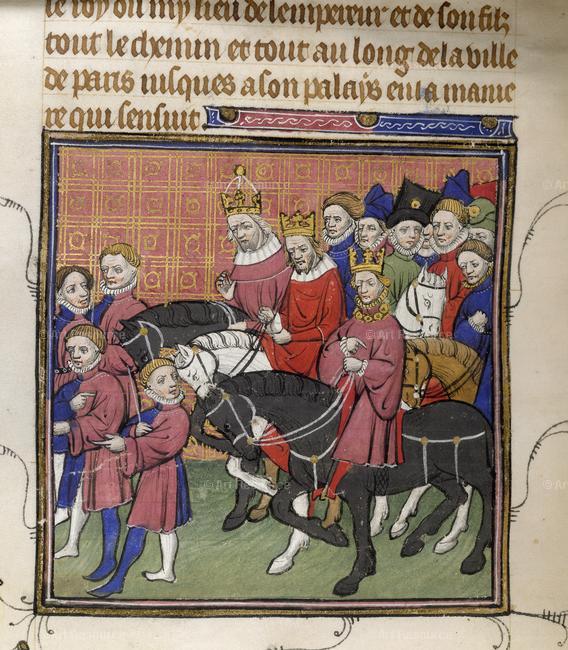 le roy ou my lieu de lempereur et de son filz
tout le chemin et tout au long de la ville
de paris iusques a son palays en la manie
re qui sensuit
© Art Resource